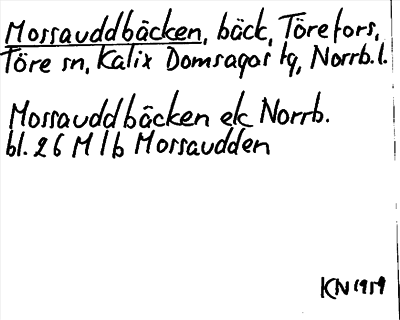 Mossauddbäcken, bäck, Törefors,
Töre sn, Kalix Domsagas tg, Norrb.l.
Mossauddbäcken ek Norrb.
bl. 26 M lb Mossaudden
KN 1959